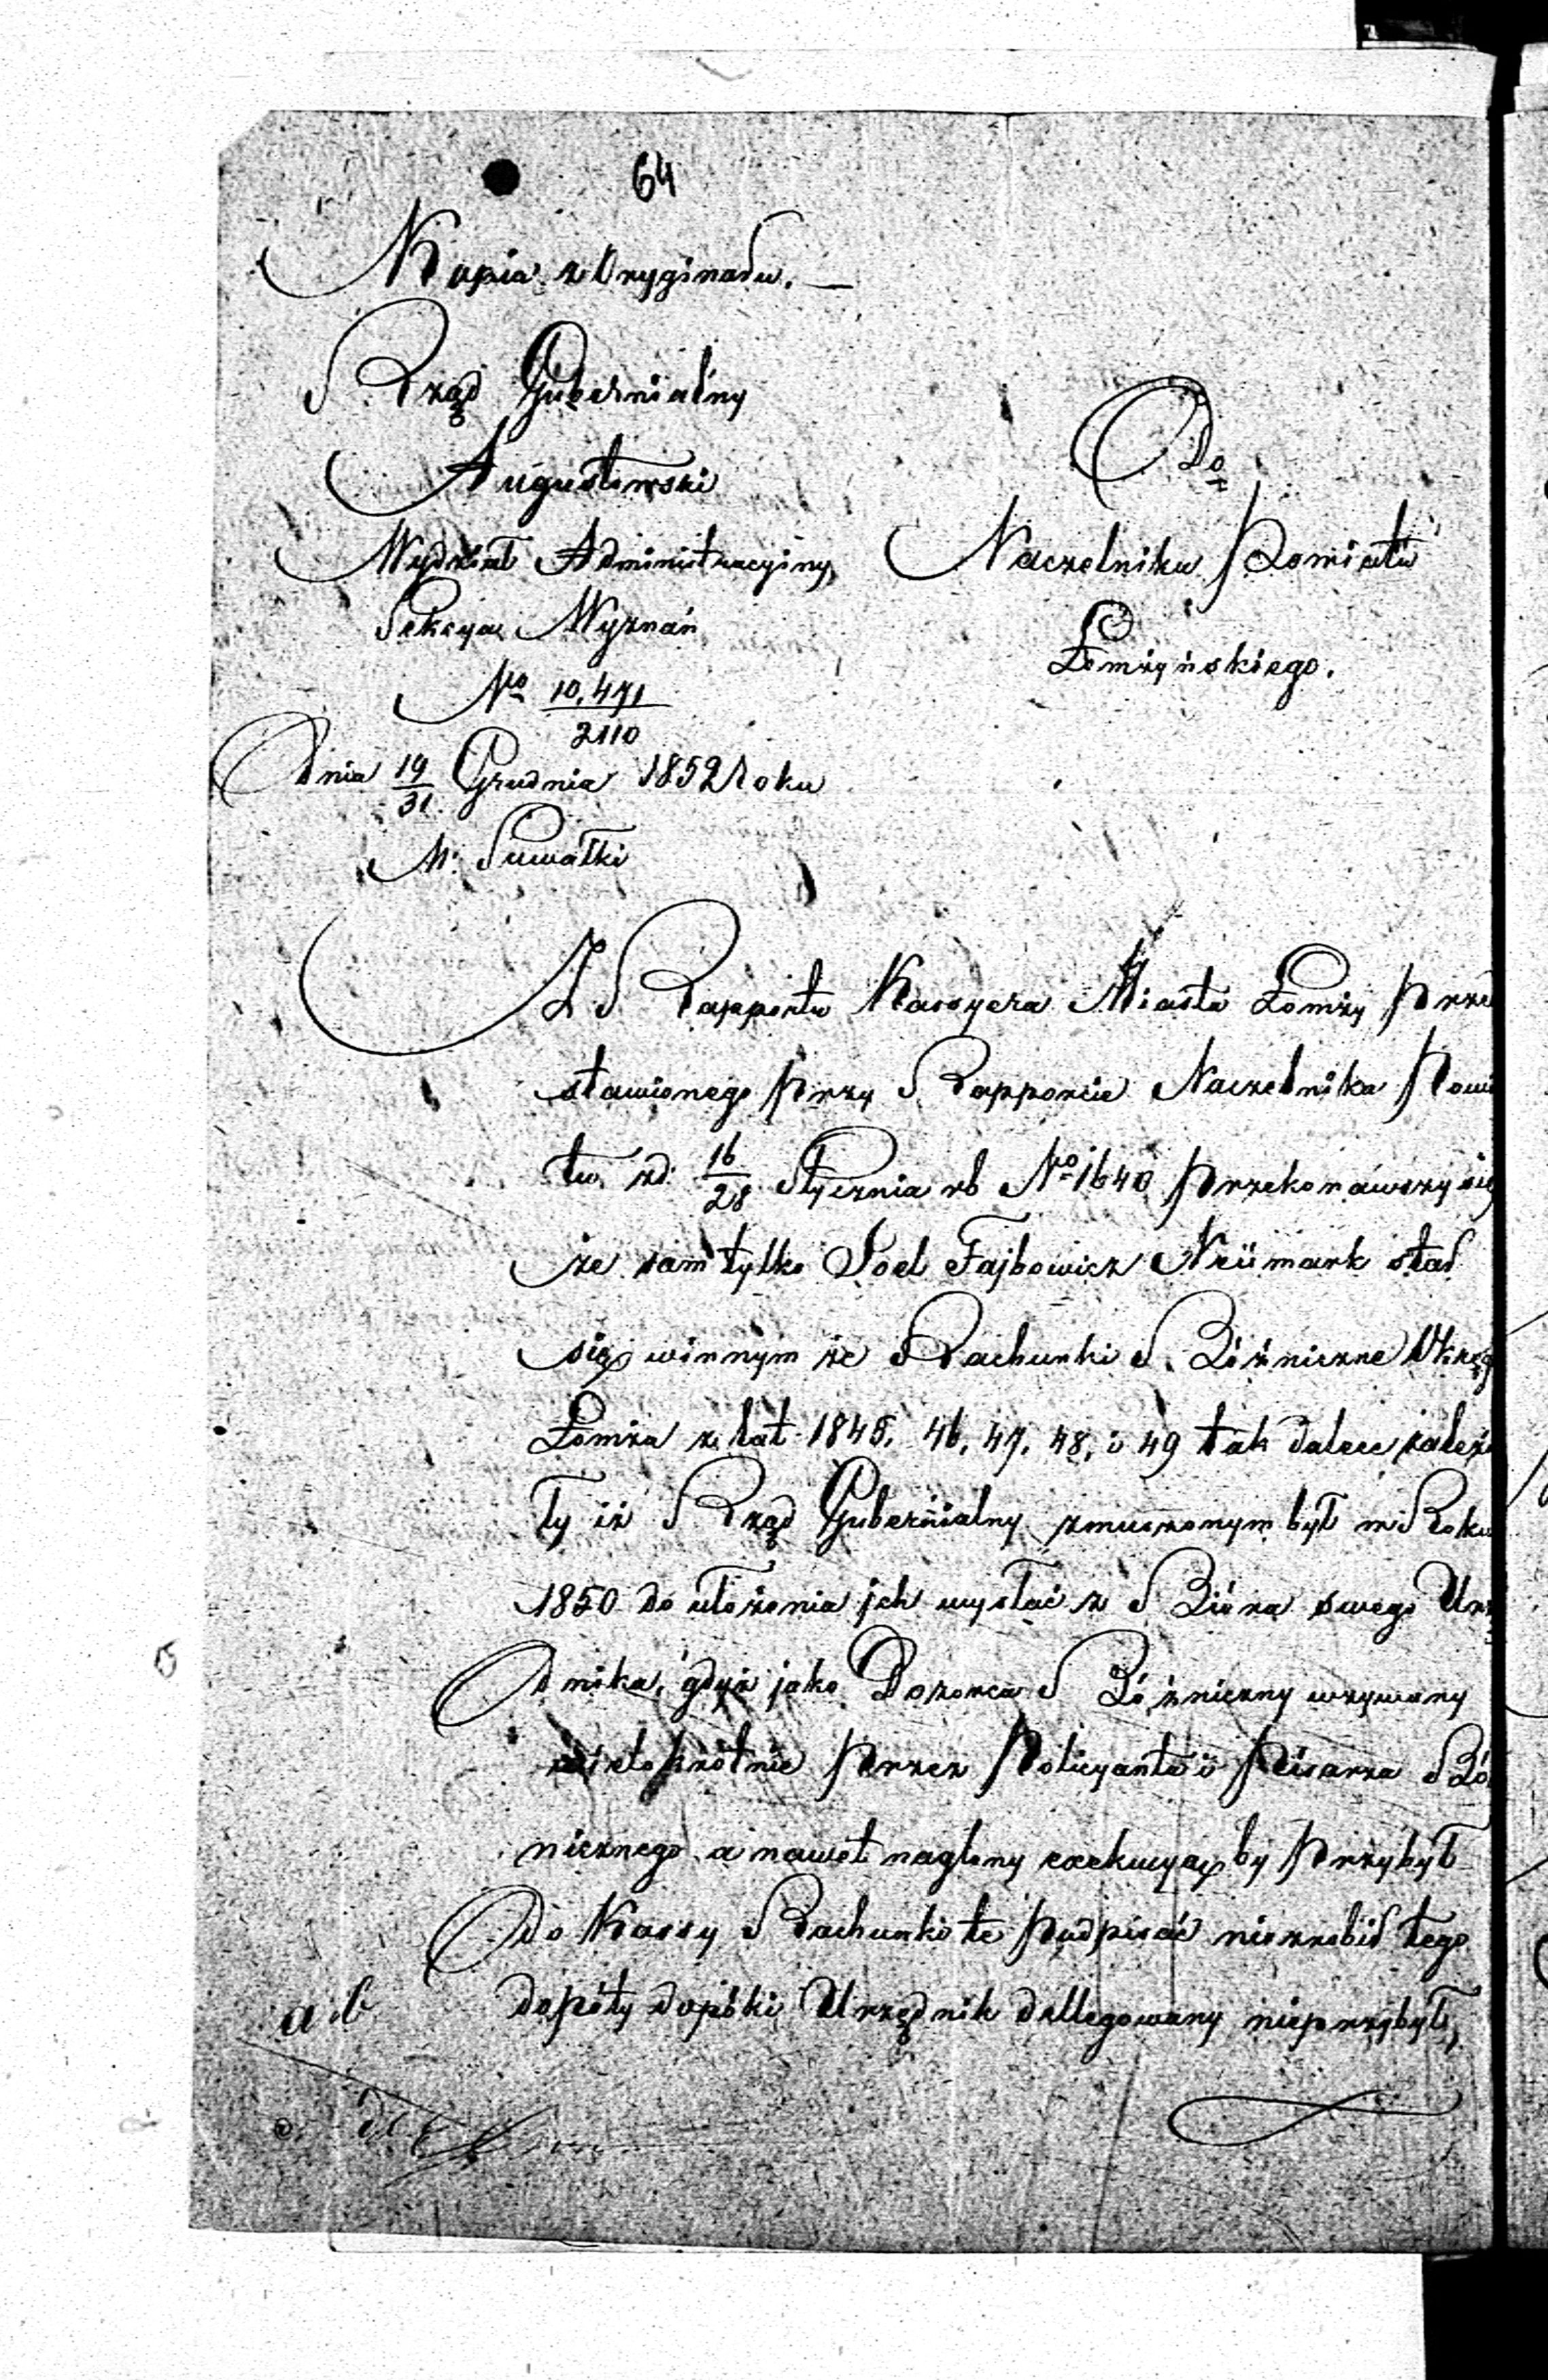 64
Kopia z Oryginału. —
Rząd Gubernialny
Augustowski
Wydział Administracyiny
Sekcya Wyznań
No 10,471
2110
Dnia 19/31 Grudnia 1852 roku
M. Suwałki
Do
Naczelnika Powiatu
Łomżyńskiego.
Z Rapportu Kassyera Miasta Łomży Prze
stawionego przy Rapporcie Naczelnika Powi
tu zd: 16/28 Stycznia rb No 1640 przekonawszy się
że sam tylko Joel Fajbowicz Neümark stał
się winnym że Rachunki Bóźniczne Okręg
Łomża z lat 1845, 46, 47, 48, i 49 tak dalece zaleg
ły iż Rząd Gubernialny zmuszonym był w Roku
1850 do ułożenia ich wysłać z Bióra swego Urz
dnika, gdyż jako Dozorca Bóżniczny wzywany
wielokrotnie przez Policyanta i Pisarza Bó
nicznego a nawet naglony exekucyą by przybył
do Kassy Rachunki te podpisać niezrobił tego
dopóty dopóki Urzędnik dellegowany nieprzybył,